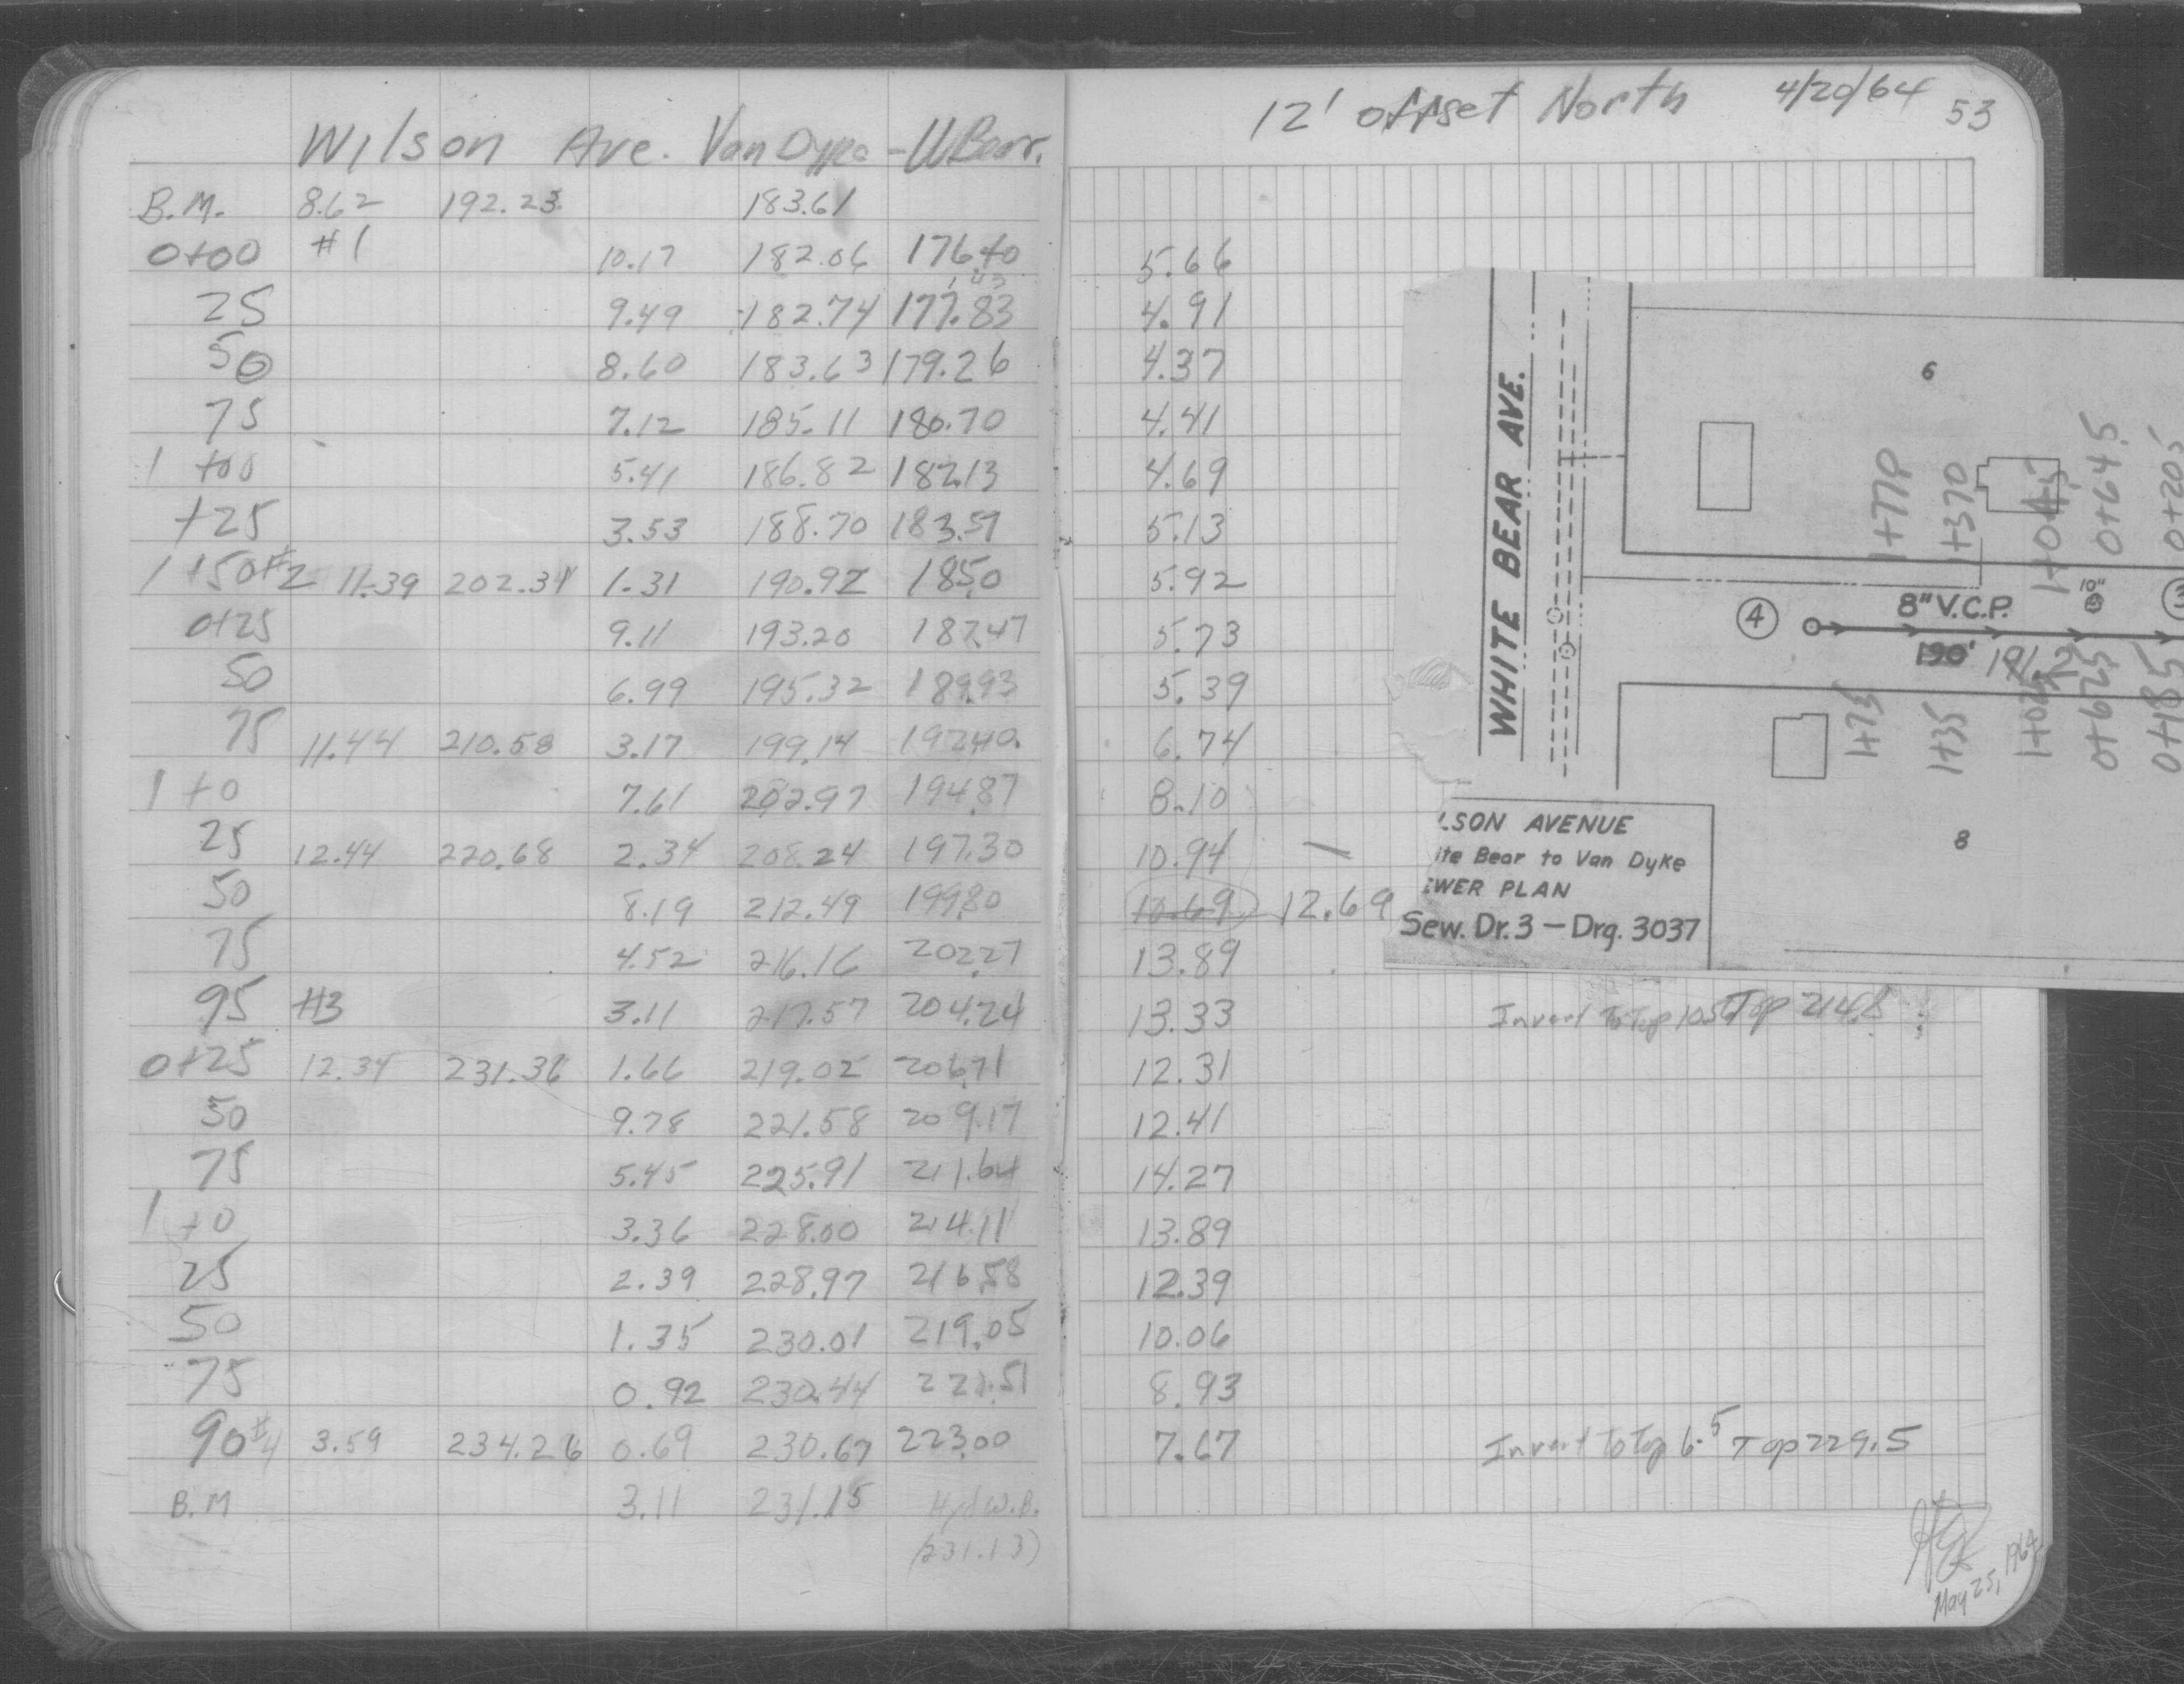 Wilson Ave. Van Dyke - W Bear.
12' offset North 4/20/64 53
B.M. 8.62 192.23 183.61
0+00 #1 10.17 182.06 176.40 5.66
1.43
25 9.49 182.74 177.83 4.91
50 8.60 183.63 179.26 4.37
75 7.12 185.11 180.70 4.41
1+00 5.41 186.82 182.13 4.69
+25 3.53 188.70 183.57 5.13
1+50 #2 11.39 202.31 1.31 190.92 185.0 5.92
0+25 9.11 193.20 187.47 5.73
50 6.99 195.32 189.93 5.39
75 11.44 210.58 3.17 199.14 192.40. 6.74
1+0 7.61 202.97 194.87 8.10
25 12.44 220.68 2.34 208.24 197.30 10.94 —
50 8.19 212.49 199.80 10.69 12.69
75 4.52 216.16 202.27 13.89
95 #3 3.11 217.57 204.24 13.33 Invert To Top 10.56 Top 214.8
0+25 12.34 231.36 1.66 219.02 206.71 12.31
50 9.78 221.58 209.17 12.41
75 5.45 225.91 211.64 14.27
1+0 3.36 228.00 214.11 13.89
25 2.39 228.97 216.58 12.39
50 1.35 230.01 219.05 10.06
75 0.92 230.44 221.51 8.93
90 #4 3.59 234.26 0.69 230.67 223.00 7.67 Invert To Top 6.5 Top 229.5
B.M 3.11 231.15 Hyd W.B.
(231.13)
WHITE BEAR AVE.
6
1+770
1+370
0+645
0+205
4
8" V.C.P.
10"
3
190' 191.
1+73
1+35
0+625
0+485
8
LSON AVENUE
ite Bear to Van Dyke
EWER PLAN
Sew. Dr. 3 - Drg. 3037
May 25, 1964